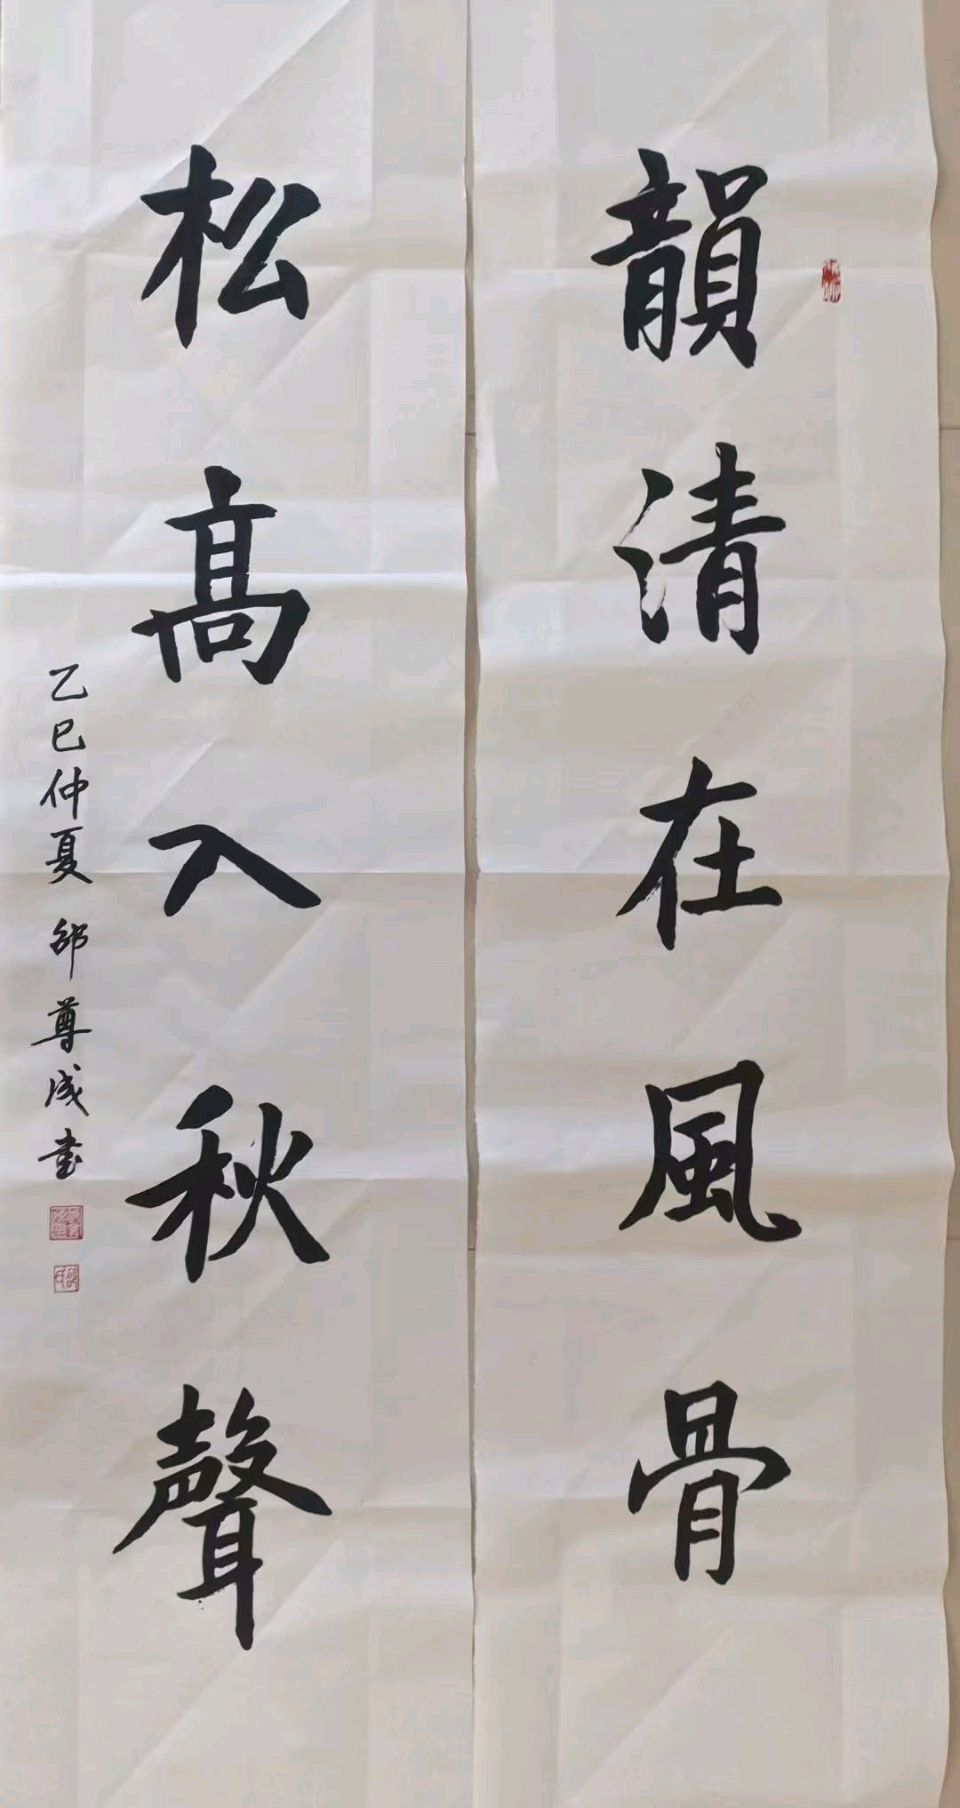 韻清在風骨
松高入秋聲
乙巳仲夏 邵尊成書